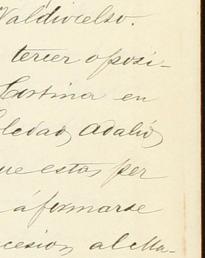 Valdivielso.
tercer oposi-
Cortina en
ledad, Adalid
ue estas per
á formarse
cesion al Ma-